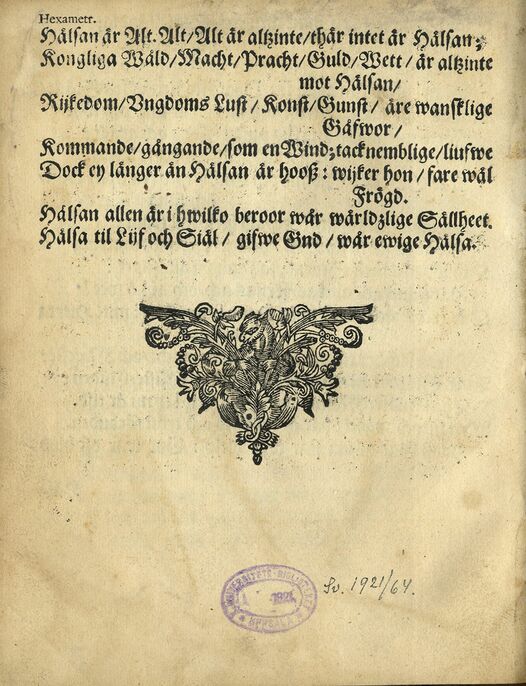 Hexametr.
Hälsan är Alt. Alt/Alt är altzinte/thär intet är Hälsan;
Kongliga Wåld/Macht/Pracht/Guld/Wett/ är altzinte
mot Hälsan/
Rijkedom/Vngdoms Lust/ Konst/Gunst/ äre wansklige
Gåfwor/
Kommande/gångande/som en Wind;tacknemblige/liufwe
Dock ey länger än Hälsan är hooß: wijker hon/ fare wäl
Frögd.
Hälsan allen är i hwilko beroor wår wärldzlige Sällheet.
Hälsa til Lijf och Siäl/ gifwe Gud/ wår ewige Hälsa.
UNIVERSITETS-BIBLIOTEKET
UPSALA
Sv. 1921/64.